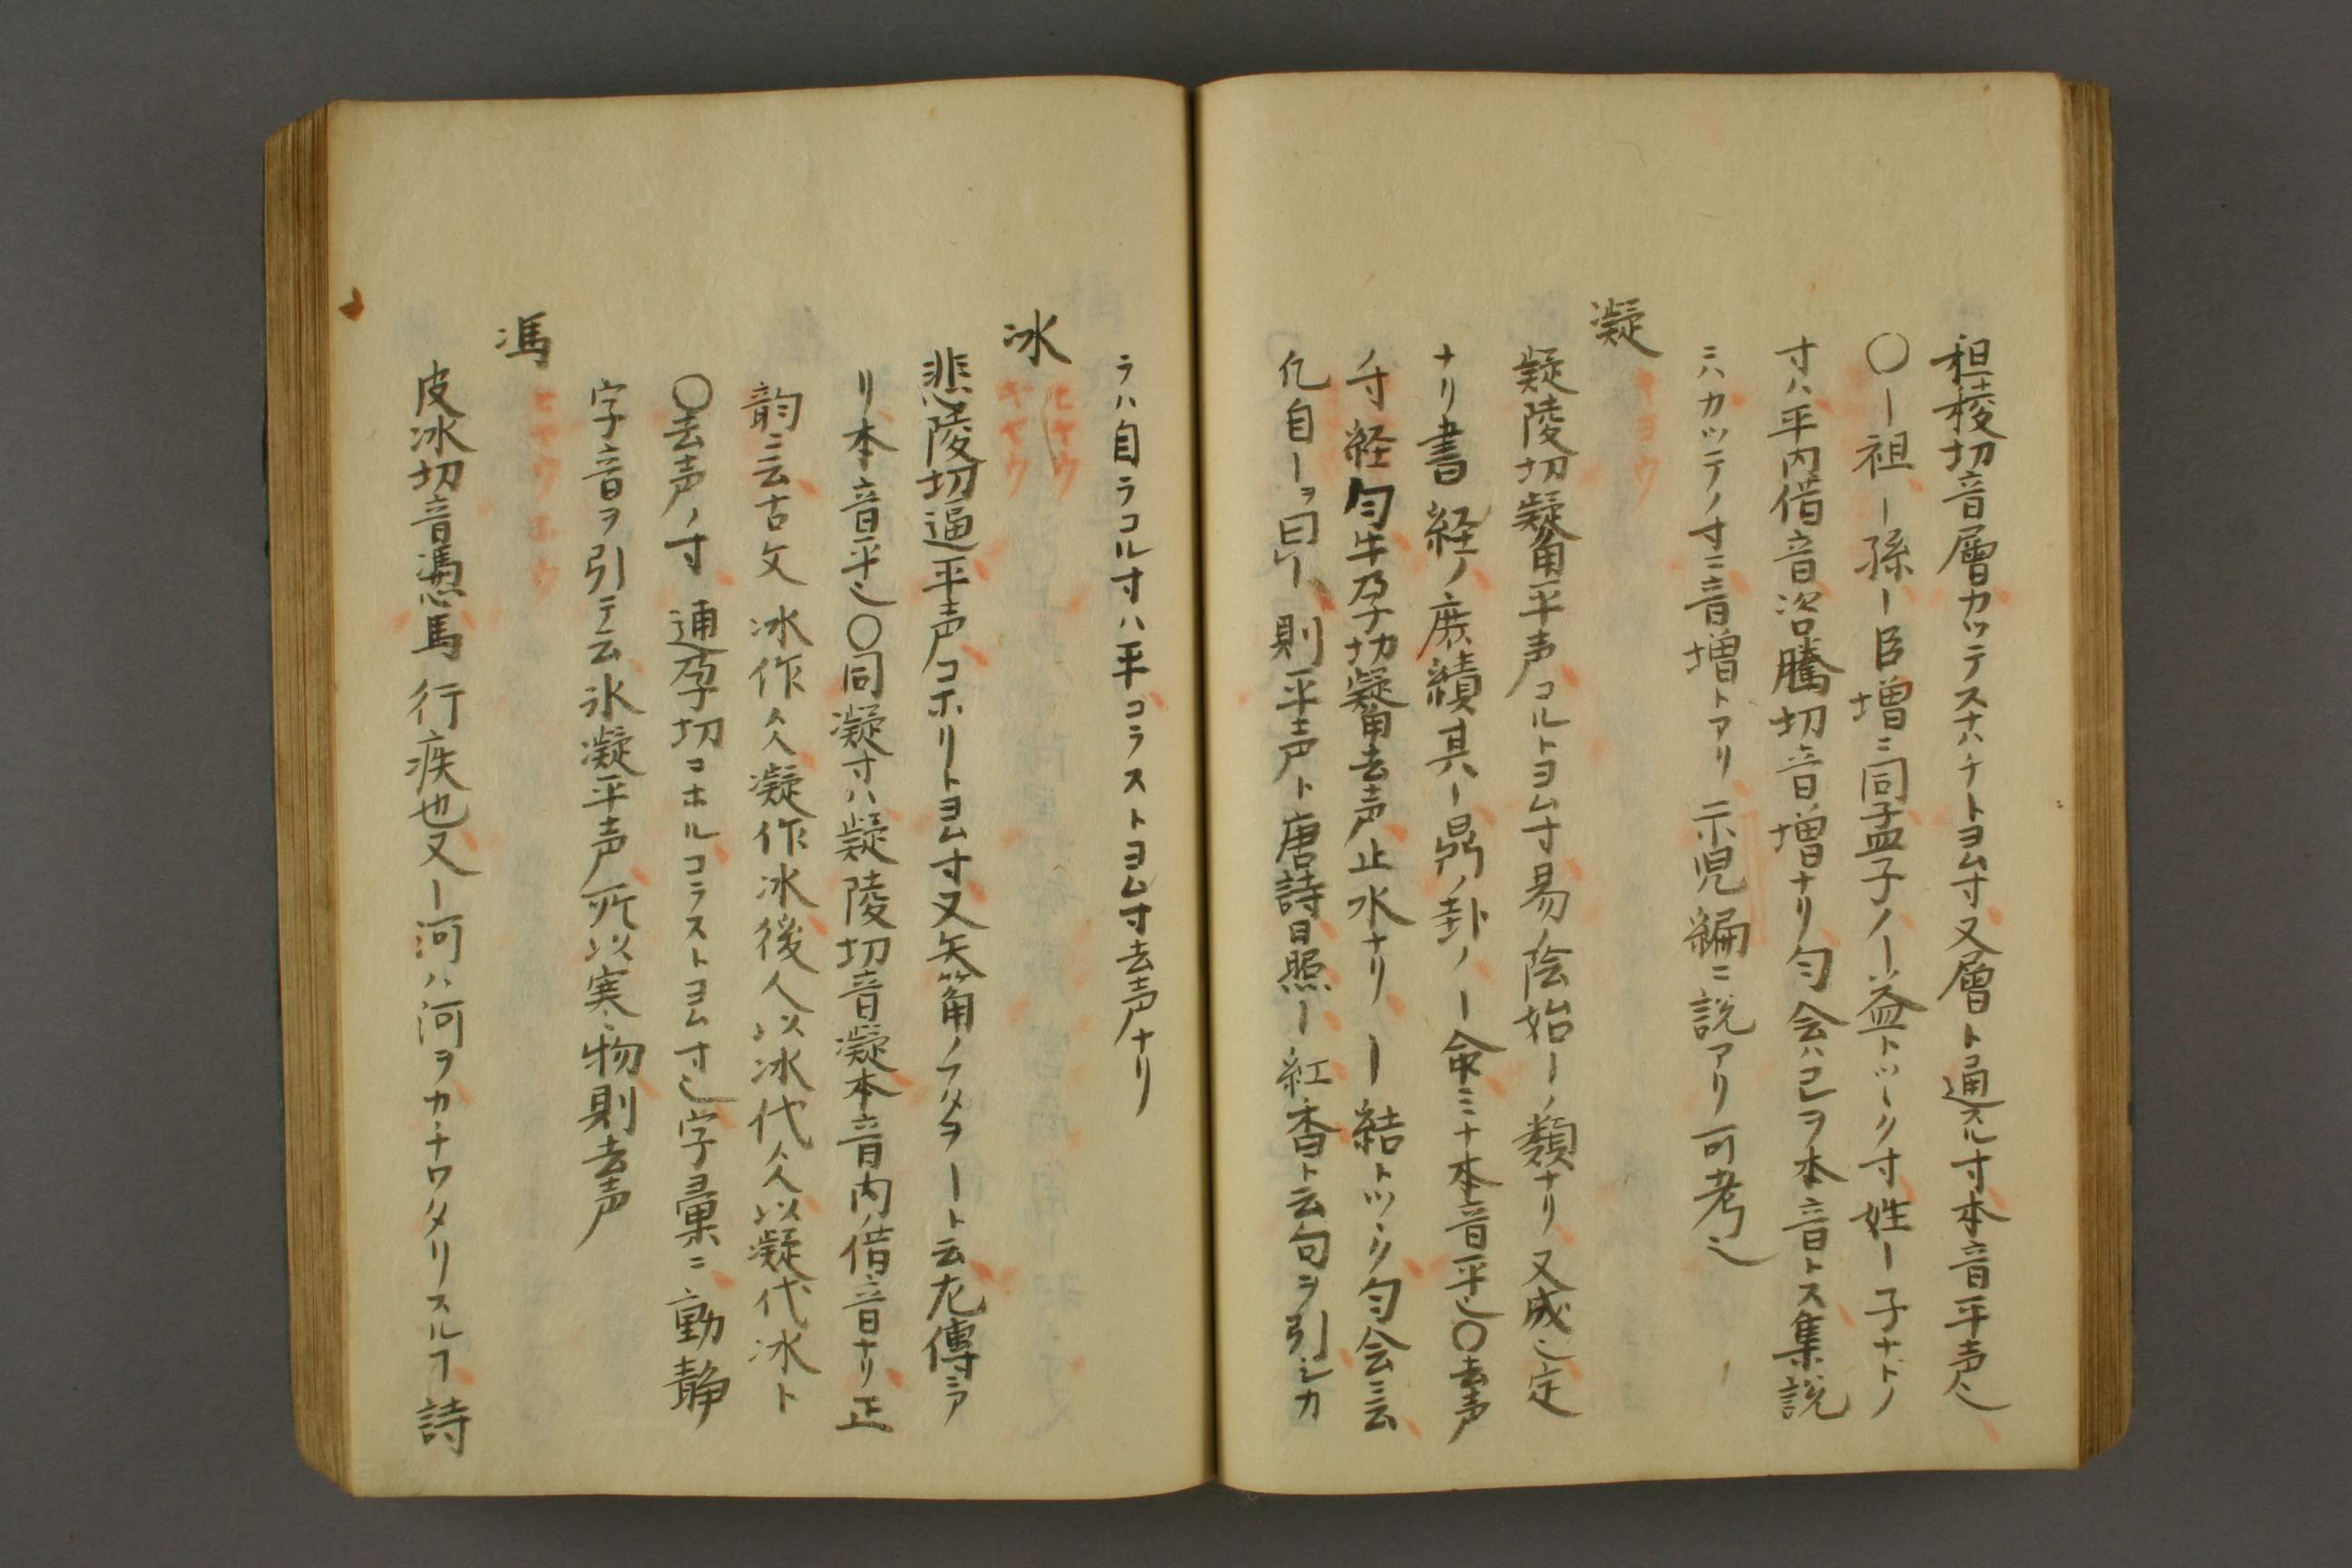 徂稜切音層カツテスナハチトヨム寸又層ト通スル寸本音平声也
〇ー祖ー孫ー臣増ニ同孟子ノー益トツヽク寸姓ー子ナドノ
寸ハ平内借音咨騰切音増ナリ匀会ハ已ヲ本音トス集説
ニハカツテノ寸ニ音増トアリ示児編ニ説アリ可考也
凝
キヨウ
疑陵切凝角平声コルトヨム寸易ノ陰始ーノ類ナリ又成也定
ナリ書経ノ庶績其ー鼎ノ卦ノー命ミナ本音平也〇去声
ノ寸経匀牛孕切凝角去声止水ナリー結トツヽク匀会ニ云
凡自ーヲ曰ヘ則平声ト唐詩日照ー紅香ト云句ヲ引シカ
ラハ自ラコル寸ハ平コラストヨム寸去声ナリ
冰
ヒヤウ
キヤウ
悲陵切逼平声コホリトヨム寸又矢筩ノフタヲート云左傳ニア
リ本音平也〇同凝寸ハ疑陵切音凝本音内ノ借音ナリ正
韵ニ云古文冰作仌凝作冰後人以冰代仌以凝代冰ト
〇去声ノ寸逋孕切コホルコラストヨム寸也字彙ニ動静
字音ヲ引テ云氷凝平声所以寒物則去声
馮
ヒヤウホウ
皮冰切音憑馬行疾也又ー河ハ河ヲカチワタリスルヿ詩